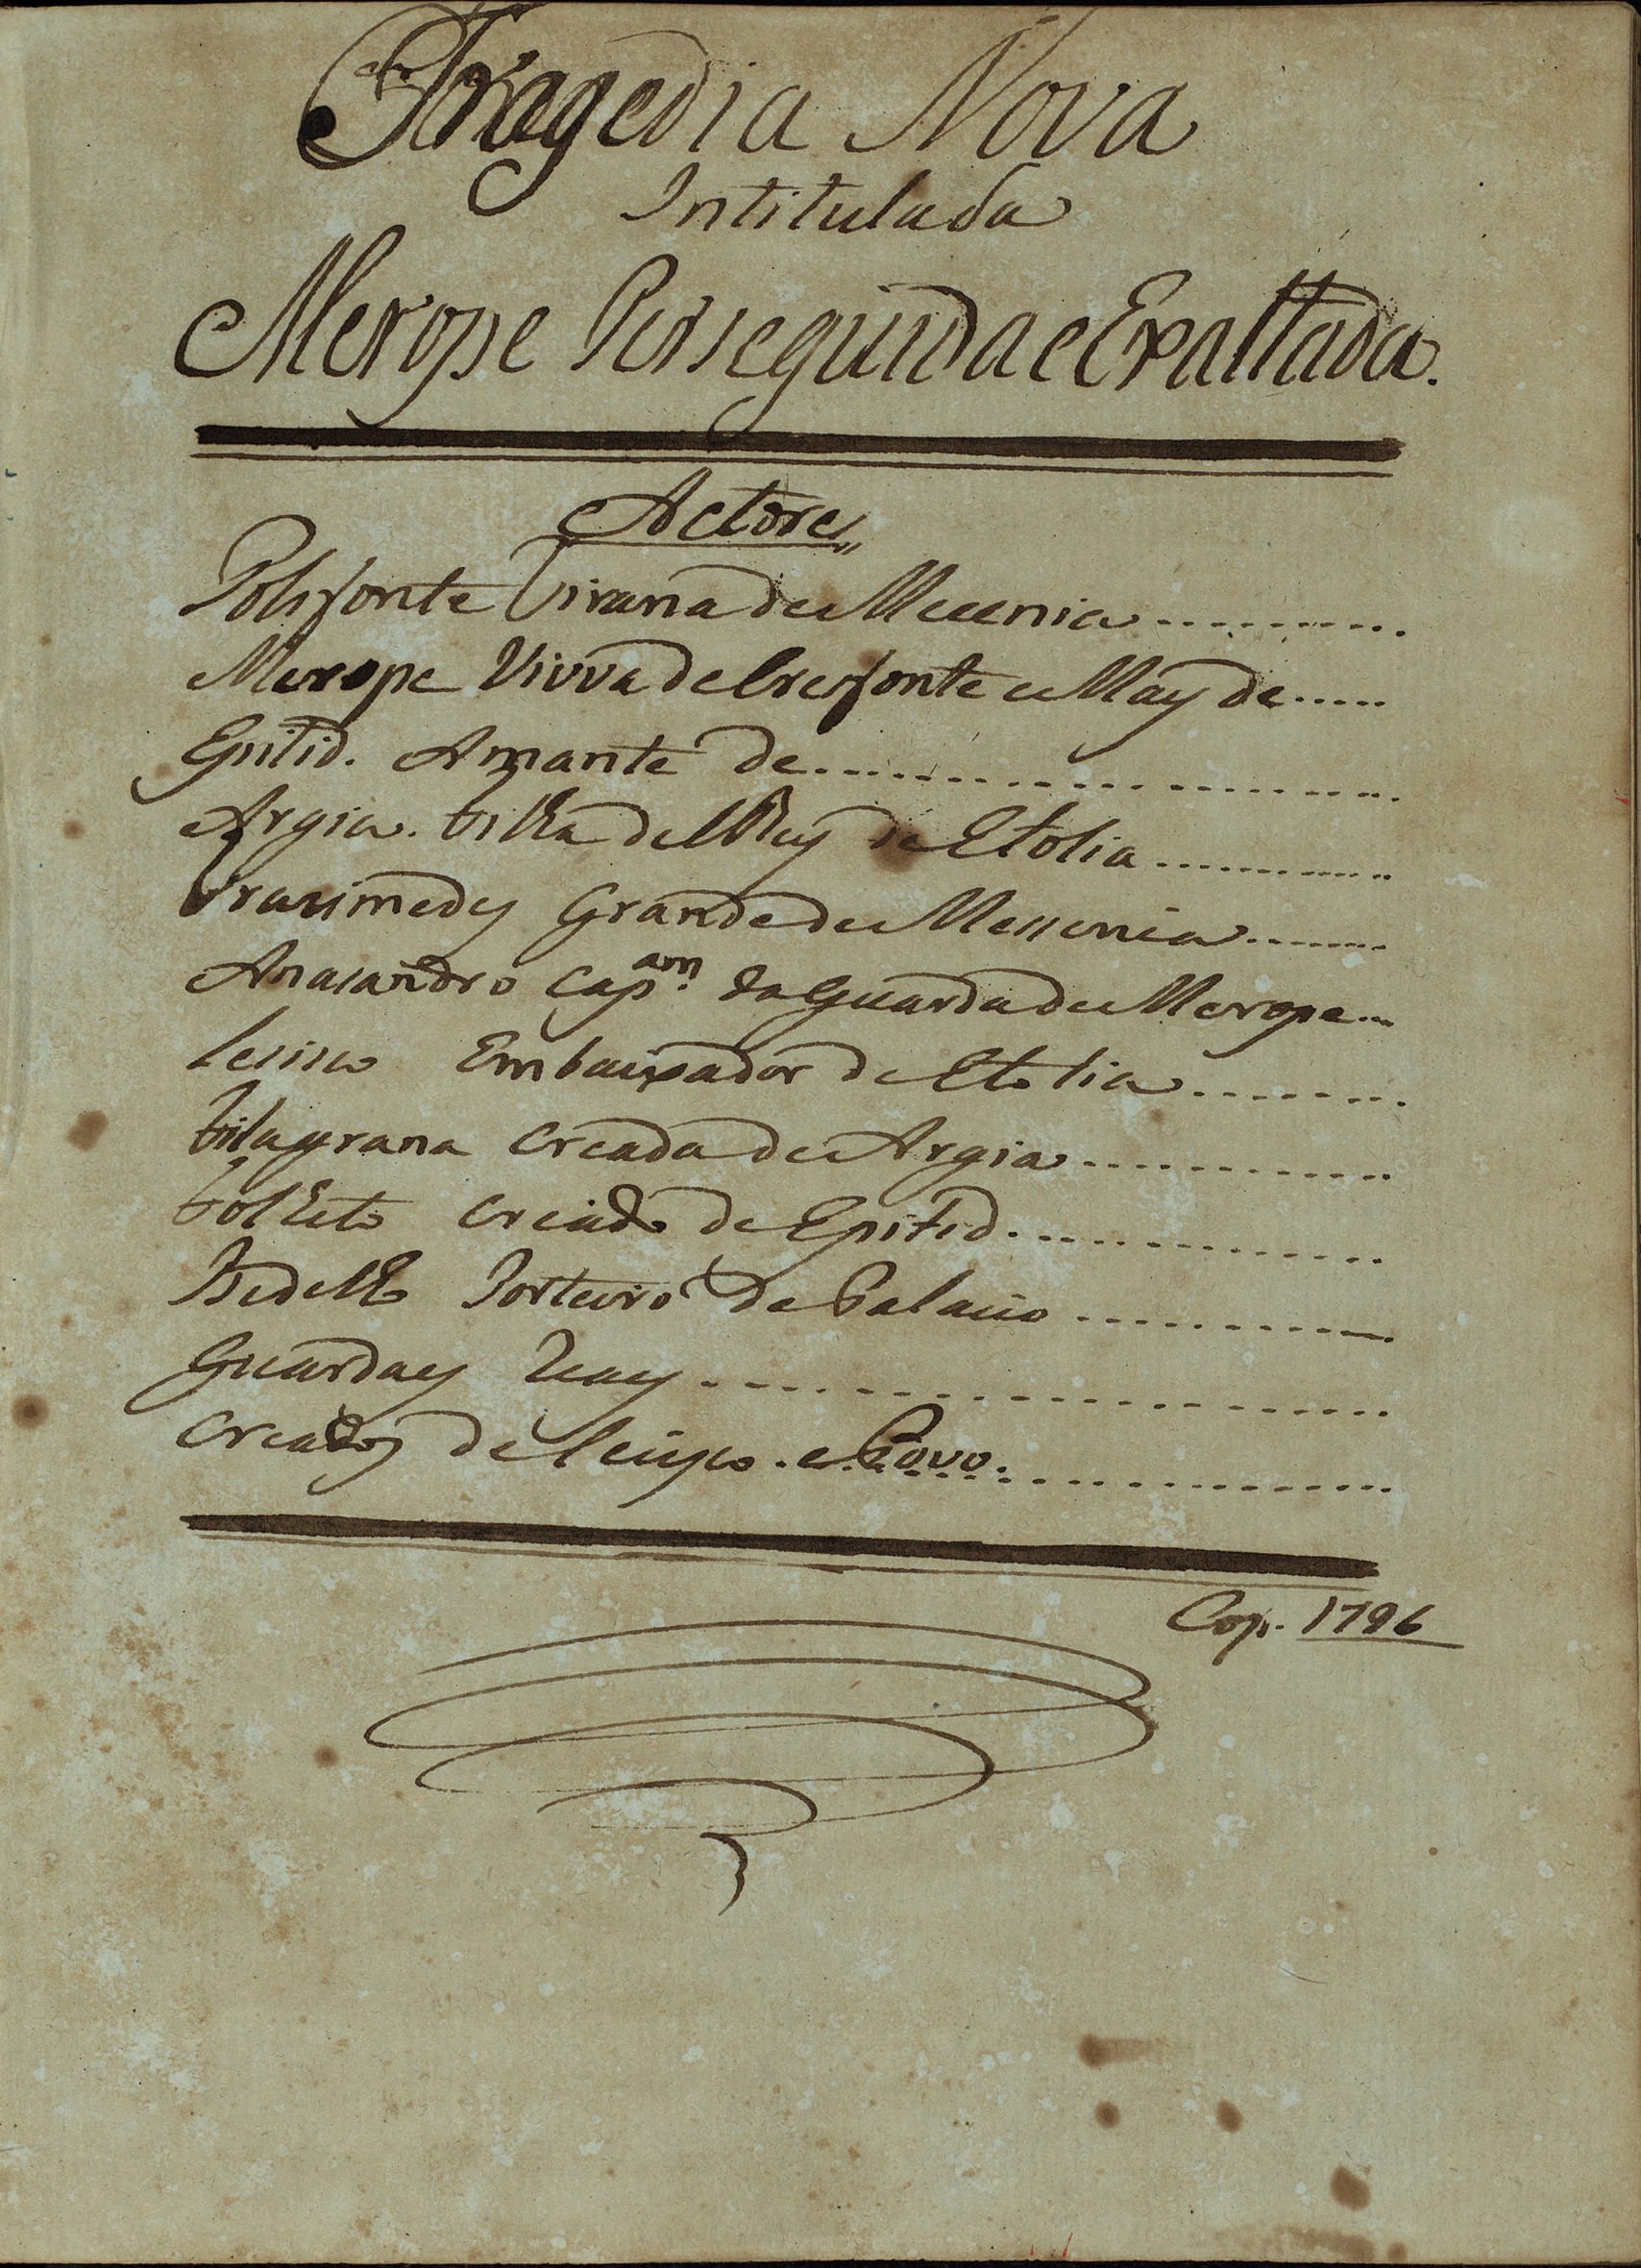 Tragedia Nova
Intitulada
Merope Perseguida e Exaltada.
Actores
Polifonte Tirana de Mecenia
Merope Viuva de Cresfonte e May de
Epitid. Amante de
Argia. Filha del Rey de Etolia
Trasimedes Grande de Messenia
Anaxandro Capam. da Guarda de Merope
Embaixador de Etolia
Filagrana Creada de Argia
Folheto Criado de Epitid.
Porteiro de Palacio
Guardas
Creados de e Povo.
Cop. 1796